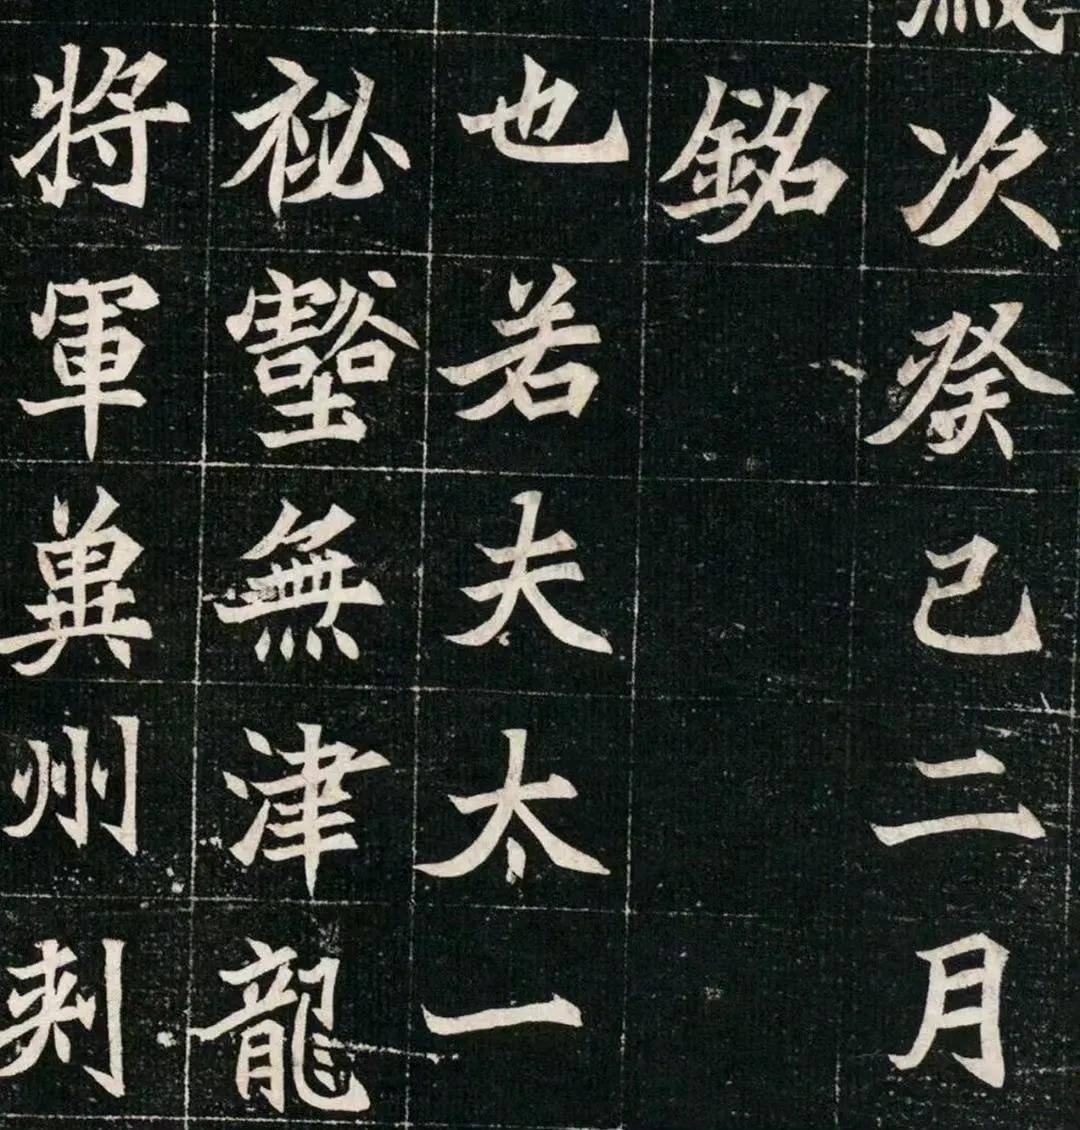 次癸巳二月
銘
也若夫太一
祕壑無津龍
將軍冀州刺